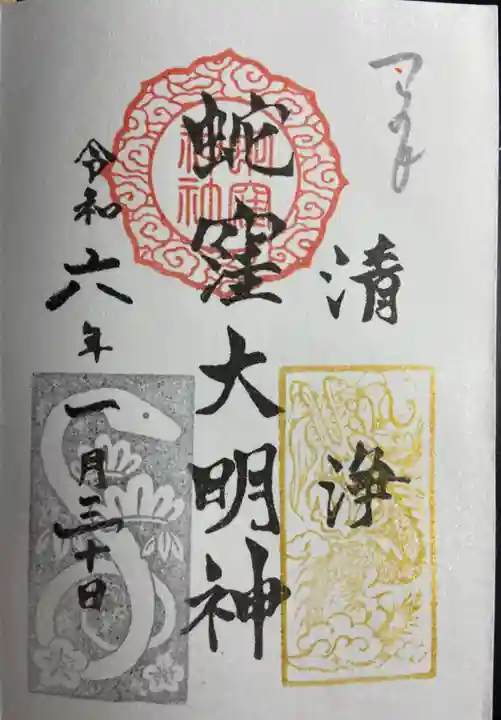 つちのと
清浄
蛇窪大明神
蛇窪神社
令和六年一月三十日